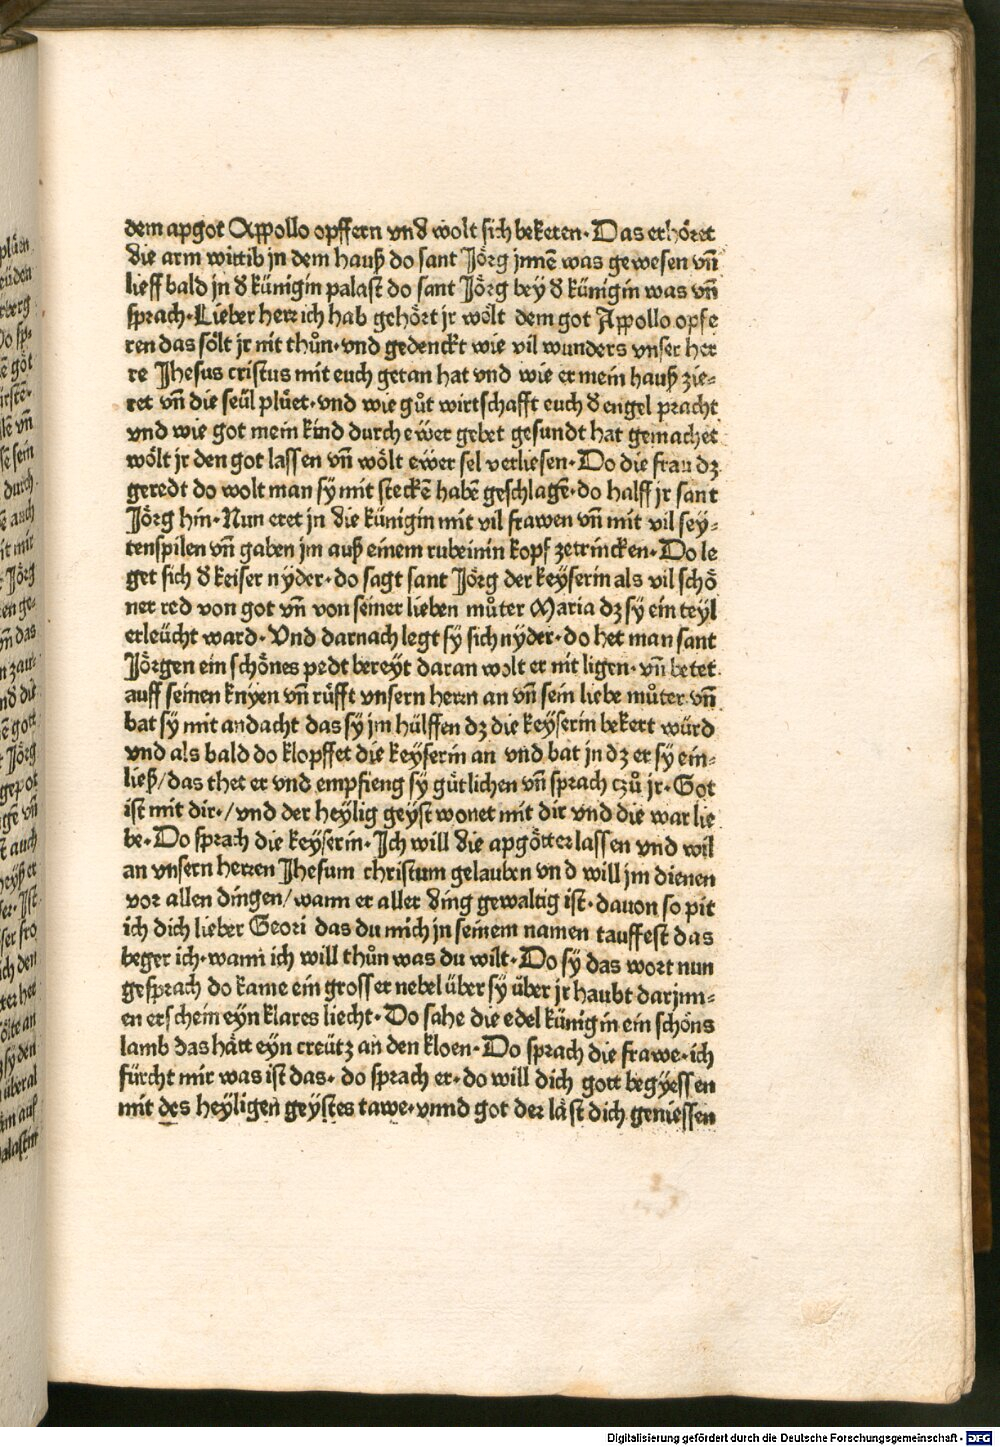 dem apgot Appollo opffern vnd wolt sich bekeren. Das erhöret
die arm wittib jn dem hauß do sant Jörg jnnē was gewesen vn̄
lieff bald jn d künigin palast do sant Jörg bey d künigin was vn̄
sprach. Lieber herr ich hab gehört jr wölt dem got Appollo opfe
ren das sölt jr nit thůn. vnd gedenckt wie vil wunders vnser her
re Jhesus cristus mit euch getan hat vnd wie er mein hauß zie⸗
ret vn̄ die seül plüet. vnd wie gůt wirtschafft euch d engel pracht
vnd wie got mein kind durch ewer gebet gesundt hat gemachet
wölt jr den got lassen vn̄ wölt ewer sel verliesen. Do die frau dz
geredt do wolt man sy mit steckē habē geschlagē. do halff jr sant
Jörg hin. Nun eret jn die künigin mit vil frawen vn̄ mit vil sey⸗
tenspilen vn̄ gaben jm auß einem rubeinin kopf zetrincken. Do le
get sich d keiser nyder. do sagt sant Jörg der keyserin als vil schö
ner red von got vn̄ von seiner lieben můter Maria dz sy ein teyl
erleücht ward. Vnd darnach legt sy sich nyder. do het man sant
Jörgen ein schönes pedt bereyt daran wolt er nit ligen. vn̄ betet
auff seinen knyen vn̄ rüfft vnsern herrn an vn̄ sein liebe můter vn̄
bat sy mit andacht das sy jm hülffen dz die keyserin bekert würd
vnd als bald do klopffet die keyserin an vnd bat jn dz er sy ein⸗
ließ/das thet er vnd empfieng sy gütlichen vn̄ sprach czů jr. Got
ist mit dir./vnd der heylig geyst wonet mit dir vnd die war lie
be. Do sprach die keyserin. Ich will die apgötter lassen vnd wil
an vnsern herren Jhesum christum gelauben vnd will jm dienen
vor allen dingen/wann er aller ding gewaltig ist. dauon so pit
ich dich lieber Geori das du mich jn seinem namen tauffest das
beger ich. wann ich will thůn was du wilt. Do sy das wort nun
gesprach do kame ein grosser nebel über sy über jr haubt darjnn⸗
en erschein eyn klares liecht. Do sahe die edel künigin ein schöns
lamb das hätt eyn creütz an den kloen. Do sprach die frawe. ich
fürcht mir was ist das. do sprach er. do will dich gott begyessen
mit des heyligen geystes tawe. vnnd got der läst dich geniessen
Digitalisierung gefördert durch die Deutsche Forschungsgemeinschaft - DFG